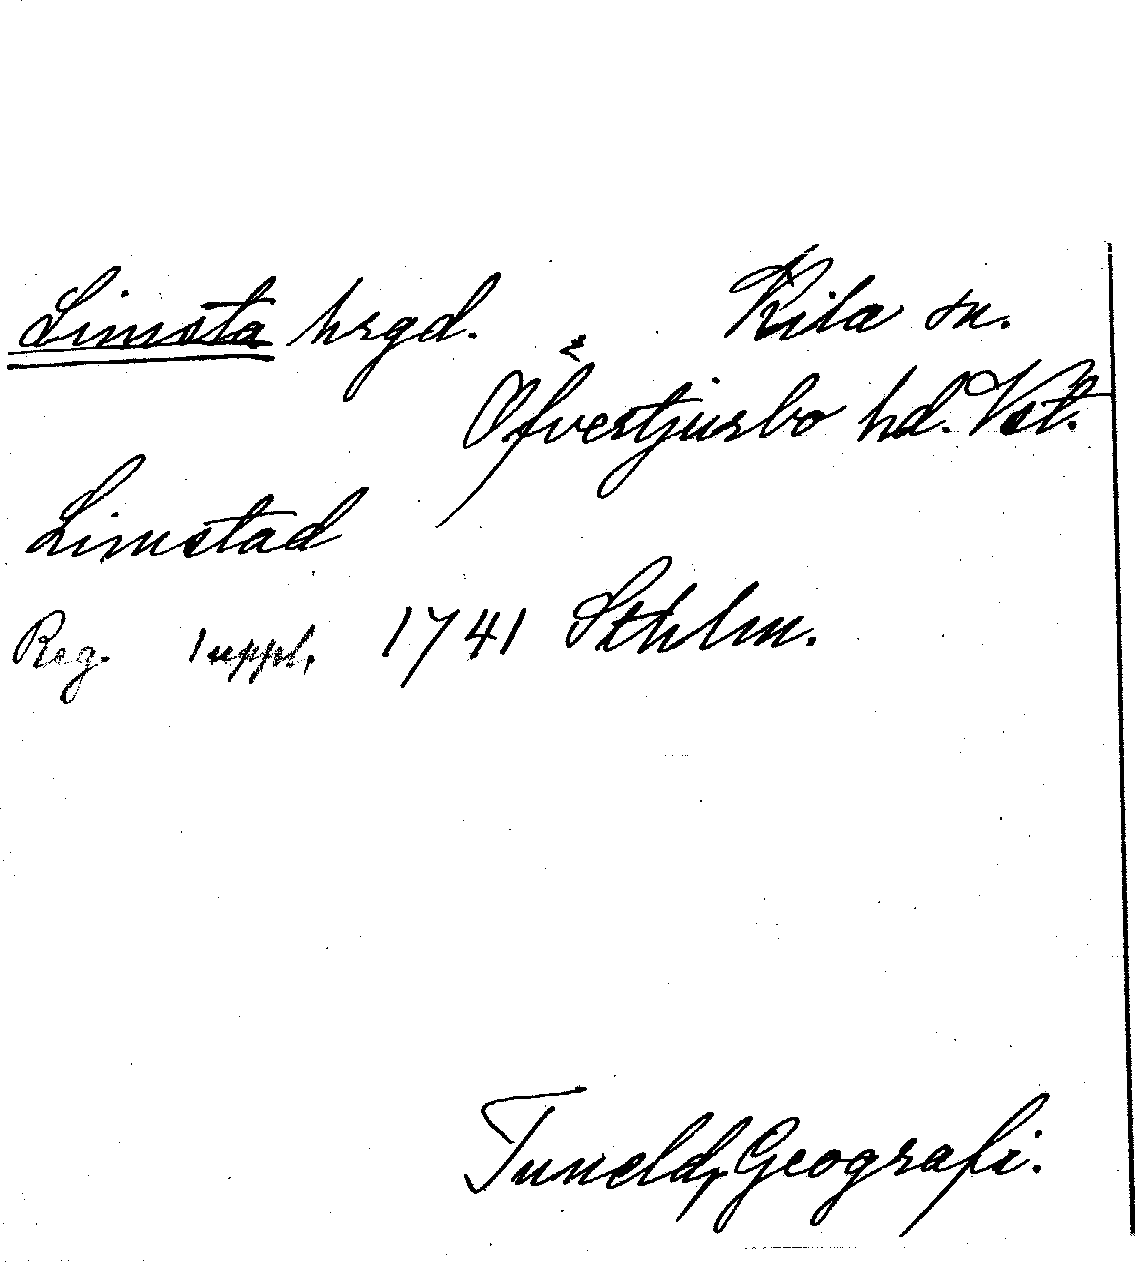 Limsta hrgd. Kila sn.
Öfvertjurbo hd. Vstl.
Limstad
Reg. suppl. 1741 Sthlm.
Tuneld, Geografi.